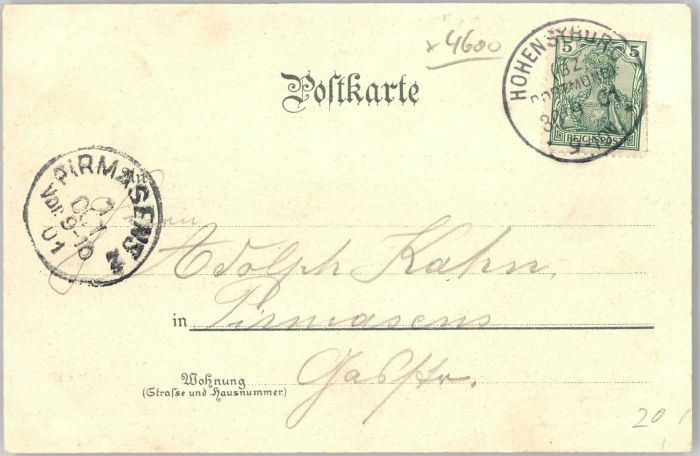 x 4600
Postkarte
HOHENSYBURG
BZ.
DORTMUND
01
5 5
REICHSPOST
PIRMASENS 2
OCT
Vor. 9-10
01
Herrn
Adolph Kahn,
in Pirmasens
Wohnung
(Straſse und Hausnummer)
Gasstr.
20